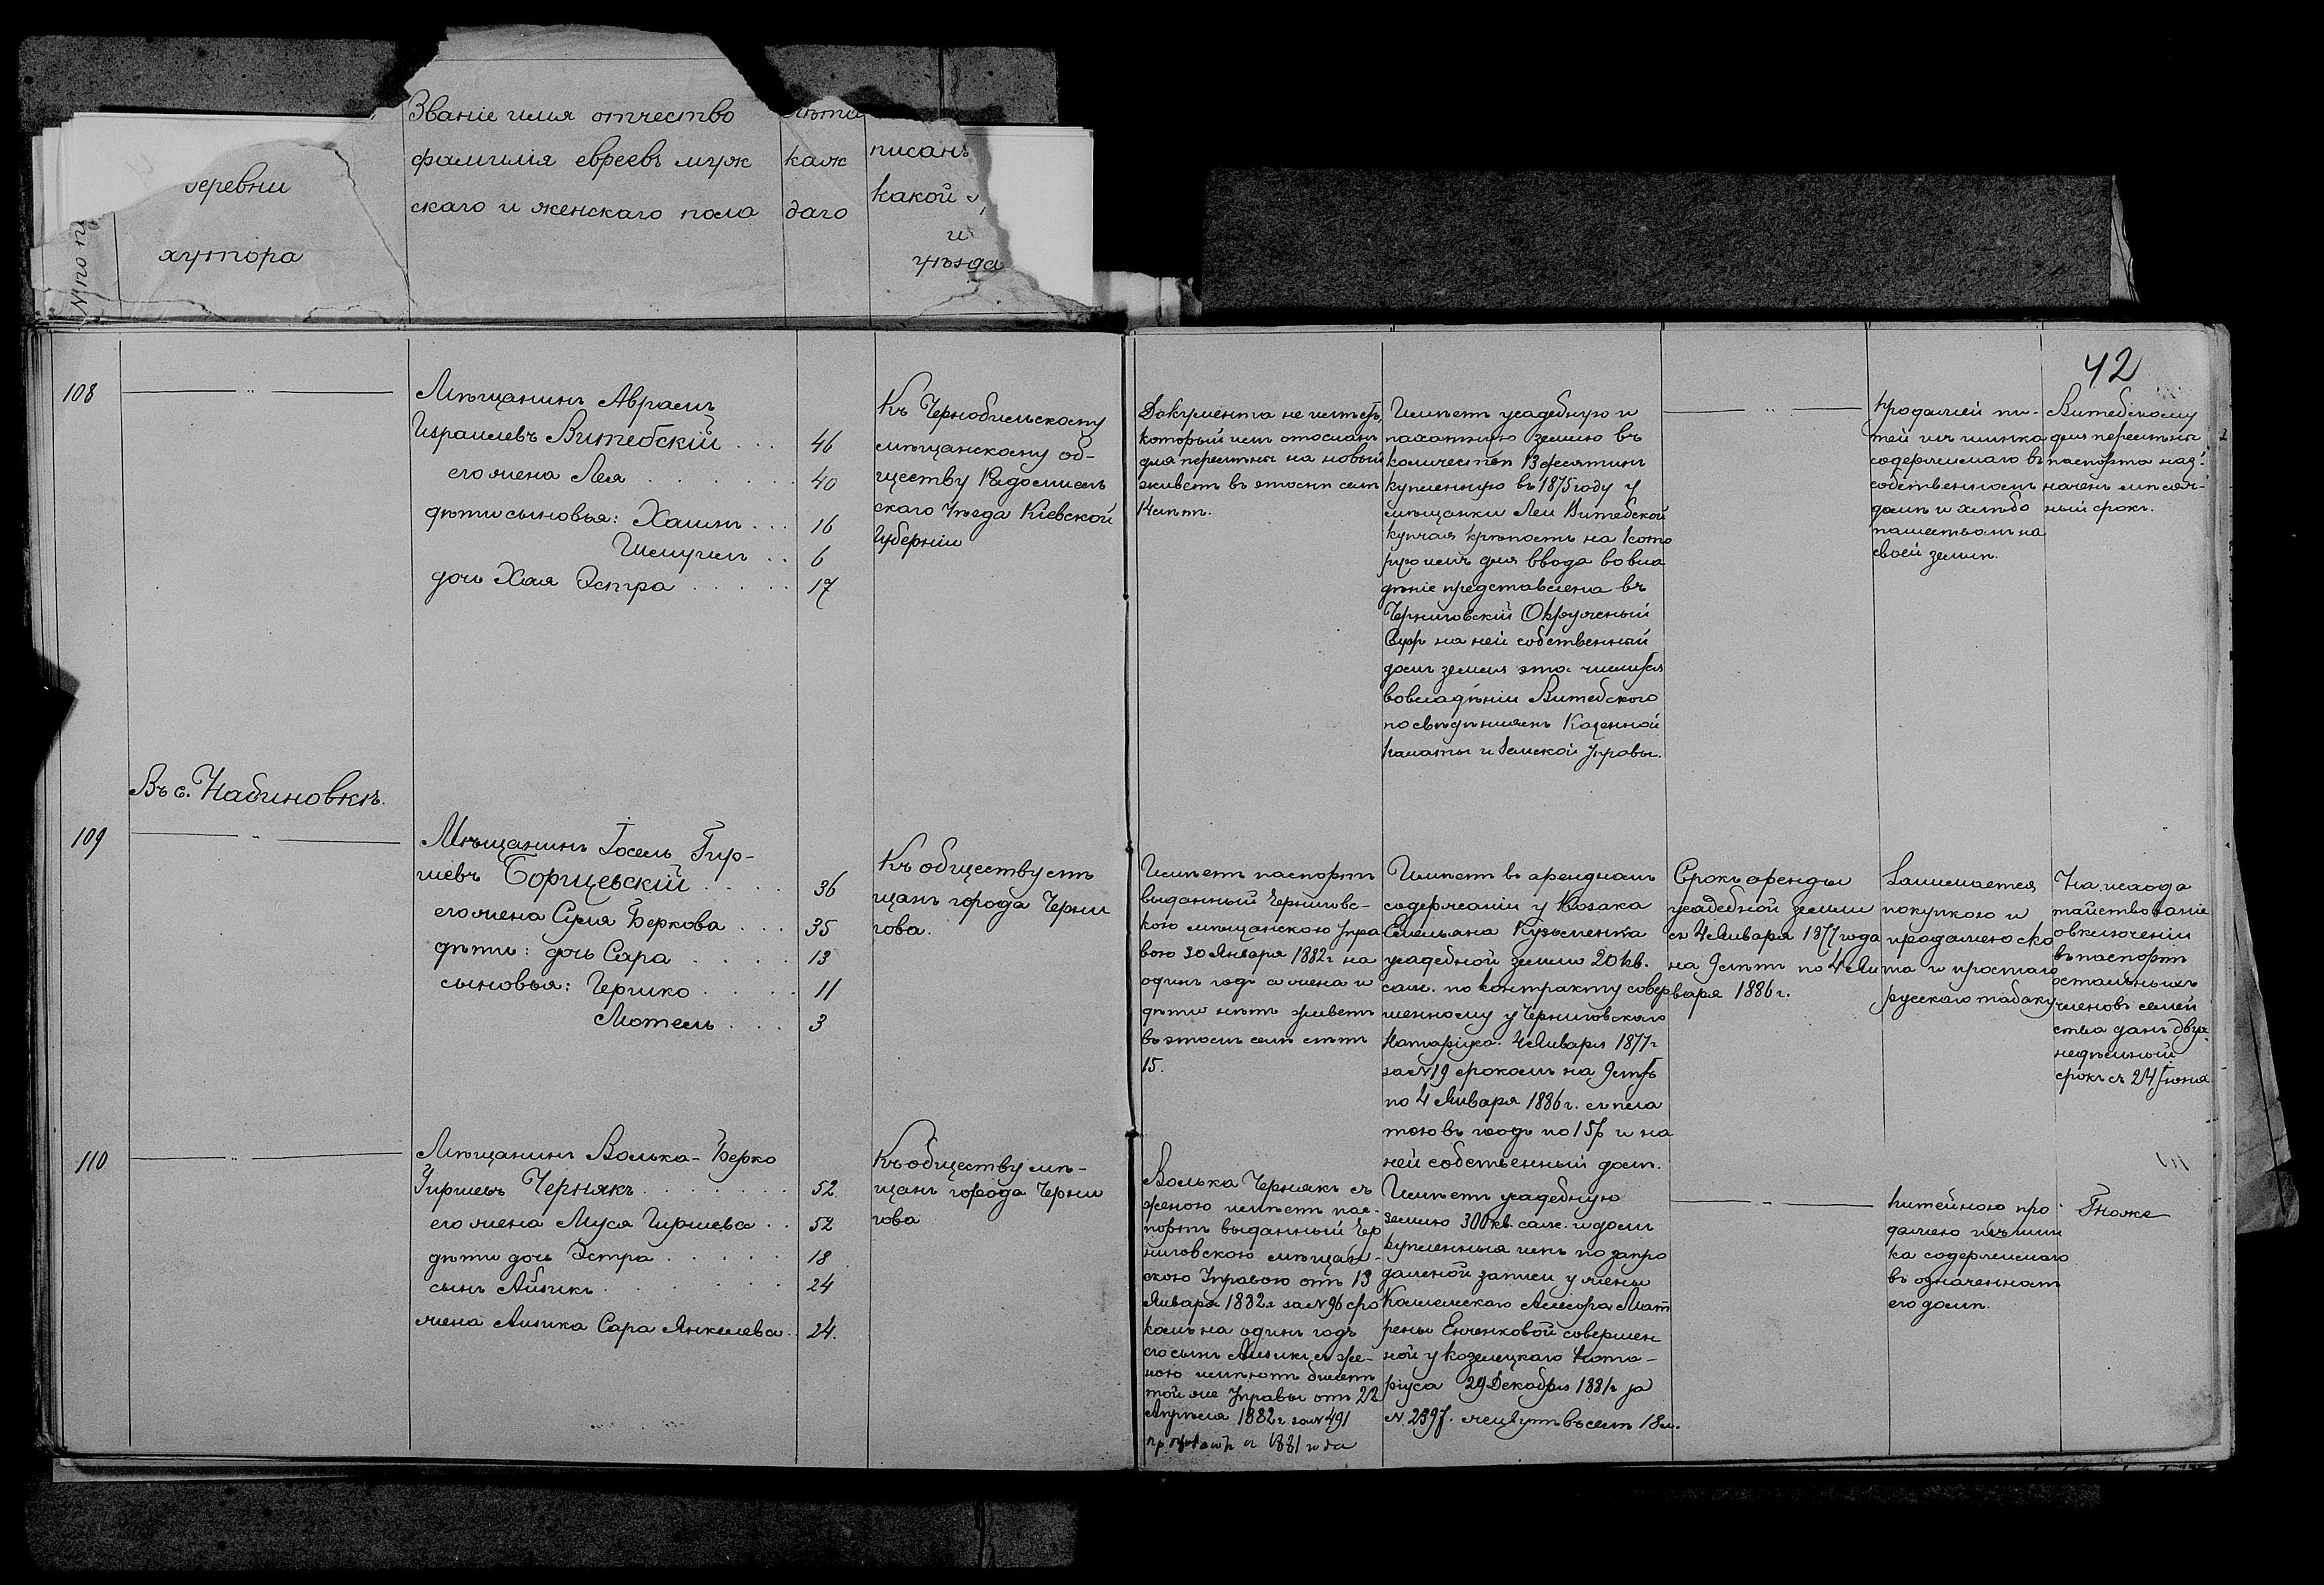 Званіе имя отчество
фамилія евреевъ муж
скаго и женскаго пола
лѣта
каж
даго
писанъ
какой
и
уѣзда
деревни
хутора
№ по п
42
108
Мѣщанинъ Аврамъ
Израилевъ Витебскій . . . 46
его жена Лея . . . . . . . 40
дѣти сыновья: Хаимъ . . . 16
Шмуилъ . . 6
дочь Хая Эстра . . . . . 17
Къ Чернобыльскому
мѣщанскому об-
ществу Радомысль
скаго Уѣзда Кіевской
Губерніи
Документа не имѣетъ,
который имъ отосланъ
для перемѣны на новый
живетъ въ этомъ селѣ
14 лѣтъ.
Имѣетъ усадебную и
пахатную землю въ
количествѣ 13 десятинъ
купленную въ 1875 году у
мѣщанки Леи Витебской
купчая крѣпость на кото
рую имъ для ввода во вла
дѣніе представлена въ
Черниговскій Окружный
Судъ на ней собственный
домъ земля эта числится
во владѣніи Витебского
по свѣдѣніямъ Казенной
Палаты и Земской Управы.
Продажей пи-
тей изъ шинка
содержимаго въ
собственномъ
домѣ и хлѣбо
пашествомъ на
своей землѣ.
Витебскому
для перемѣны
паспорта наз-
наченъ мѣсяч-
ный срокъ.
Въ с. Набиновкѣ.
109
Мѣщанинъ Іосель Гир-
шевъ Борщевскій . . . . 36
его жена Суля Беркова . . . 35
дѣти: дочь Сара . . . . 13
сыновья: Гершко . . . . . 11
Мотель . . . 3
Къ обществу мѣ
щанъ города Черни
гова.
Имѣетъ паспортъ
выданный Черниговс-
кою мѣщанскою Упра
вою 30 Января 1882 г. на
одинъ годъ а жена и
дѣти нѣтъ живетъ
въ этомъ селѣ лѣтъ
15.
Имѣетъ въ арендномъ
содержаніи у Козака
Емельяна Кузьменка
усадебной земли 20 кв.
саж. по контракту совер
шенному у Черниговскаго
Нотаріуса 4 Января 1877 г.
за № 19 срокомъ на 9 лѣтъ
по 4 Января 1886 г. съ пла
тою въ годъ по 15 р и на
ней собственный домъ.
Срокъ аренды
усадебной земли
съ 4 Января 1877 года
на 9 лѣтъ по 4 Ян
варя 1886 г.
Занимается
покупкою и
продажею ско
та и простаго
русскаго табаку
На исхода
тайствованіе
о включеніи
въ паспортъ
остальныхъ
членовъ семей
ства данъ двух
недѣльный
срокъ съ 24 Іюня
110
Мѣщанинъ Волька-Берко
Гиршевъ Чернякъ . . . . . . . 52.
его жена Муся Гиршева . . 52
дѣти дочь Эстра . . . . . 18
сынъ Айзикъ . . . . . . 24
жена Айзика Сара Янкелева . 24.
Къ обществу мѣ-
щанъ города Черни
гова
Волька Чернякъ съ
женою имѣетъ пас-
портъ выданный Чер
ниговскою мѣщан-
скою Управою отъ 13
Января 1882 г. за № 96 сро
комъ на одинъ годъ
его сынъ Айзикъ съ же-
ною имѣютъ билетъ
той же Управы отъ 22
Апрѣля 1882 г. за № 491
съ 1881 года
Имѣетъ усадебную
землю 300 кв. саж. и домъ
купленныя имъ по запро
дажной записи у жены
Коллежскаго Асесора Мат
рены Енченковой совершен
ной у Козелецкаго Нота-
ріуса 29 Декабря 1881 г за
№ 2397. живутъ въ селѣ 18 л.
Питейною про
дажею изъ шин
ка содержимаго
въ означенномъ
его домѣ.
Тоже